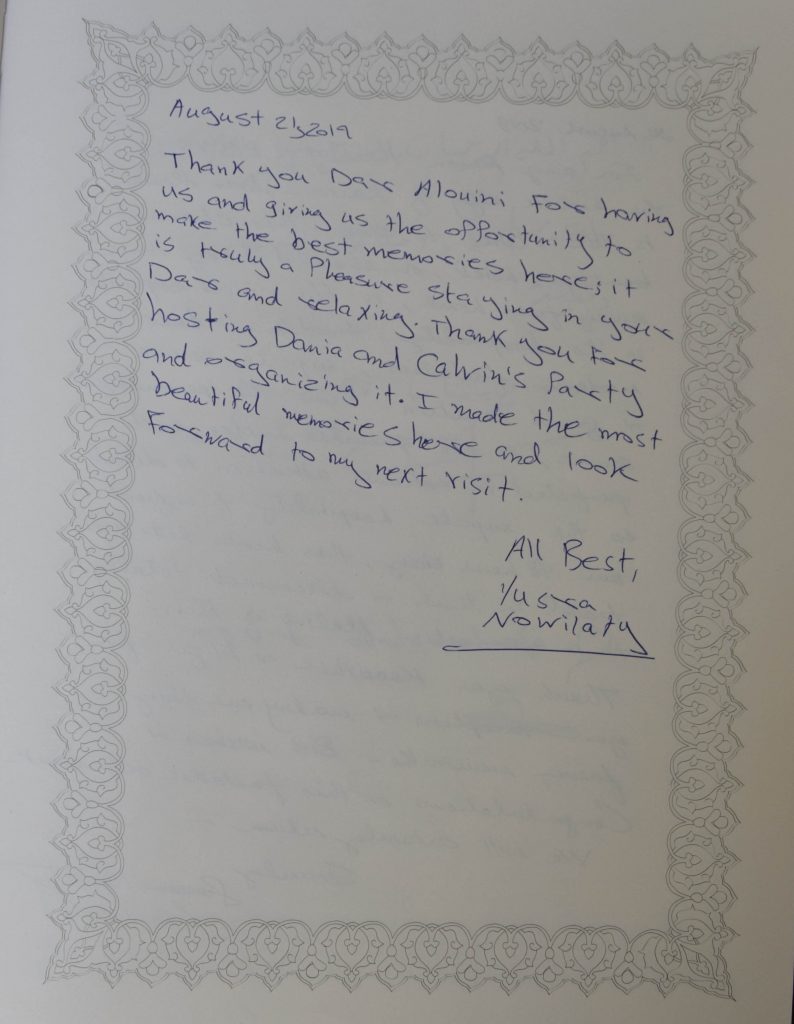 August 21, 2019
Thank you Dar Alouini For having
us and giving us the opportunity to
make the best memories here; it
is truly a Pleasure staying in your
Dar and relaxing. Thank you For
hosting Dania and Calvin's Party
and organizing it. I made the most
beautiful memories here and look
Forward to my next visit.
All Best,
Yusra
Nowilaty